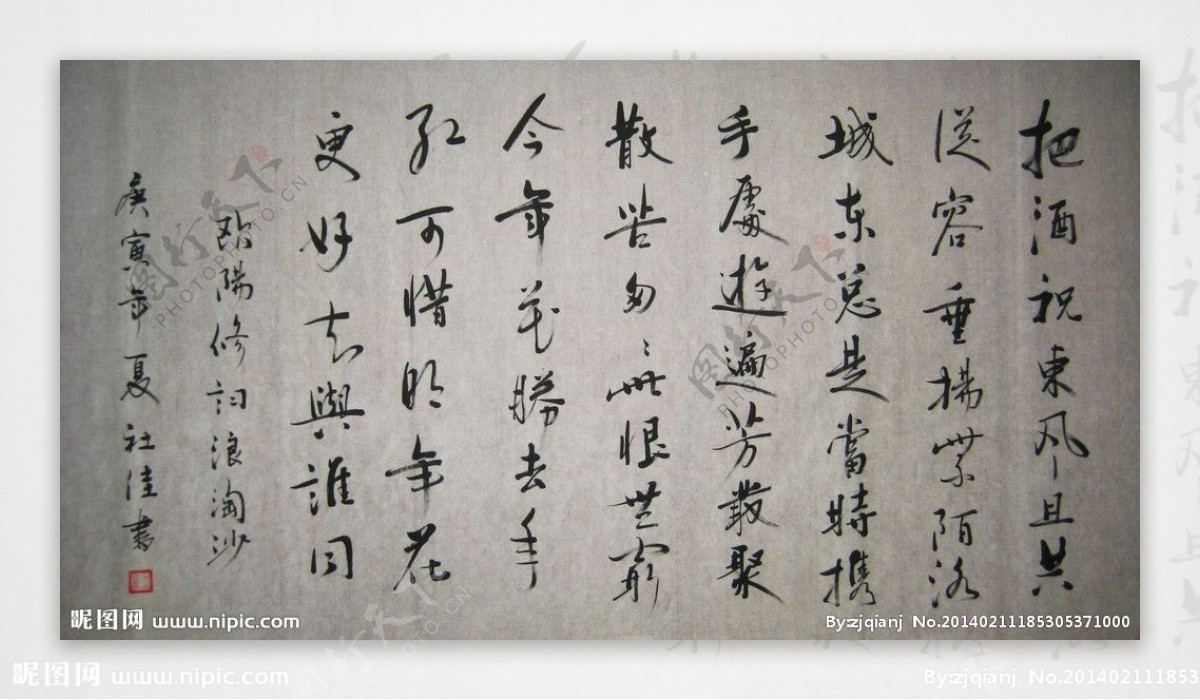 把酒祝東风且共
從容垂楊紫陌洛
城东总是當時携
手處遊遍芳叢聚
散苦匆々此恨無窮
今年花勝去年
红可惜明年花
更好知與誰同
欧陽修词浪淘沙
庚寅年夏社佳書
昵图网 www.nipic.com
Byzjqianj No.20140211185305371000
昵图网 www.nipic.com
By:zjqianj No.201402111853